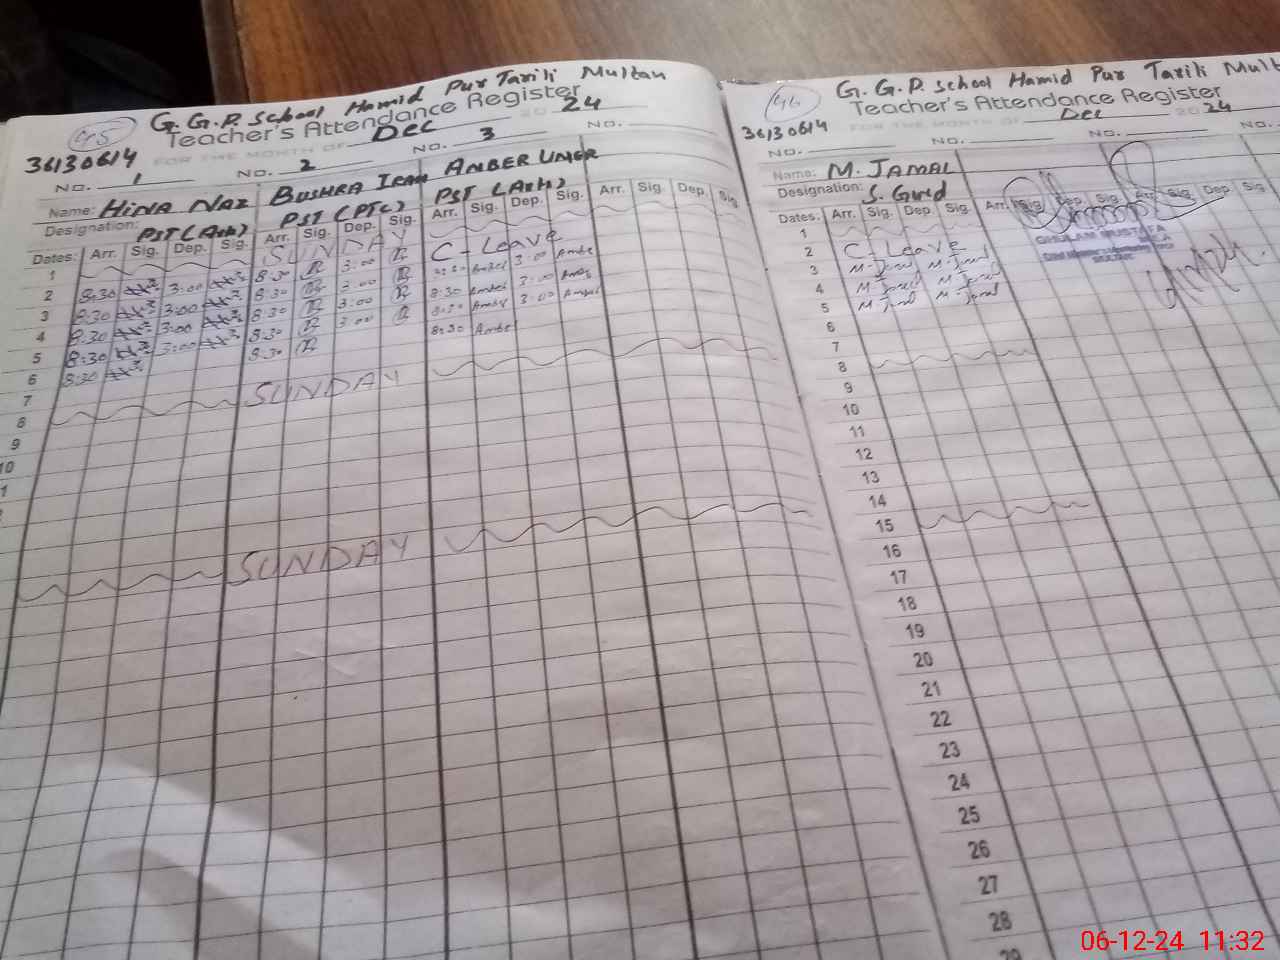 95
G. G. P. School Hamid Pur Tarili Multan
Teacher's Attendance Register
36130614
FOR THE MONTH OF Dec 20 24
No. 1 No. 2 No. 3 No.
Name: HINA NAZ BUSHRA IRAM AMBER UMER
Designation: PST (Arh) PST (PTC) PST (Arh)
Dates: Arr. Sig. Dep. Sig. Arr. Sig. Dep. Sig. Arr. Sig. Dep. Sig. Arr. Sig. Dep. Sig.
1 SUNDAY
2 8:30 3:00 8:30 3:00 C-Leave
3 8:30 3:00 8:30 3:00 8:30 Amber 3:00 Amber
4 8:30 3:00 8:30 3:00 8:30 Amber 3:00 Amber
5 8:30 3:00 8:30 3:00 8:30 Amber 3:00 Amber
6 8:30 8:30 8:30 Amber
7
8 SUNDAY
9
10
SUNDAY
96
G. G. P. School Hamid Pur Tarili Mult
Teacher's Attendance Register
36130614
FOR THE MONTH OF Dec 20 24
No. No. No.
Name: M. JAMAL
Designation: S. Gurd
Dates: Arr. Sig. Dep. Sig. Arr. Sig. Dep. Sig. Arr. Sig. Dep. Sig.
GHULAM MUSTAFA
1
2 C-Leave
3 M-Jamal M-Jamal
4 M-Jamal M-Jamal
5 M-Jamal M-Jamal
6
7
8
9
10
11
12
13
14
15
16
17
18
19
20
21
22
23
24
25
26
27
28
29
06-12-24 11:32